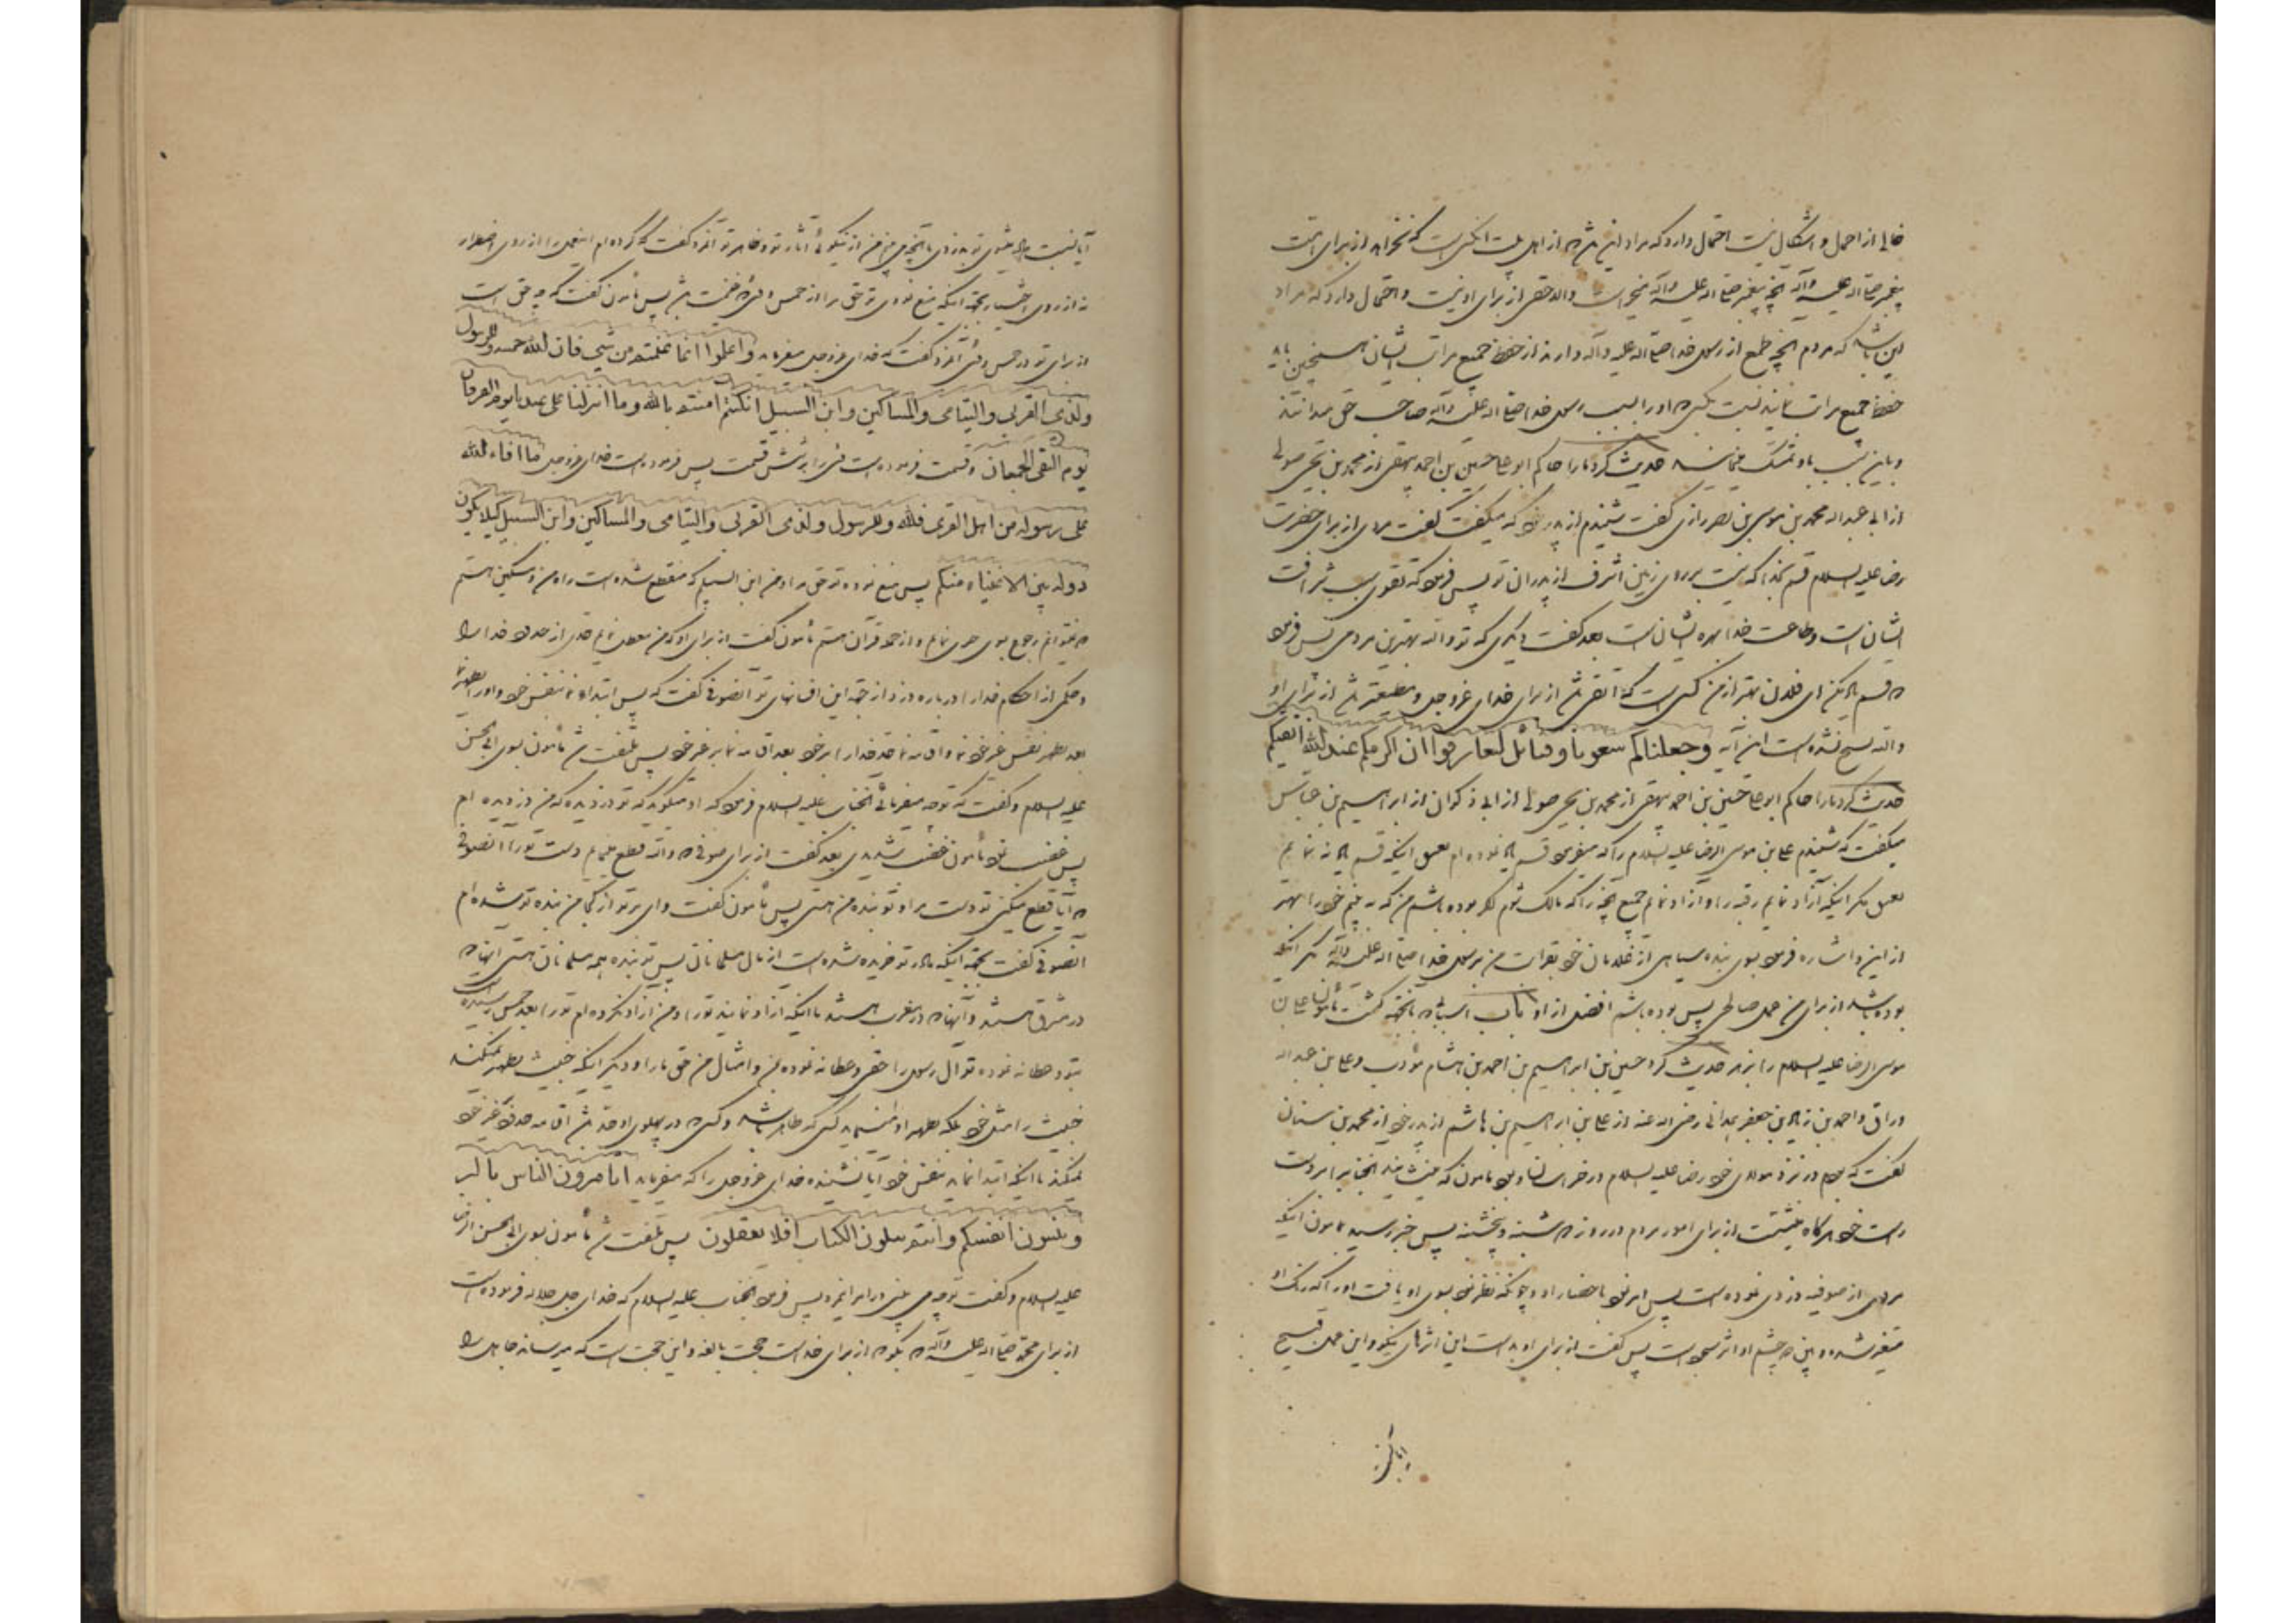 خالی از اجمال و اشکال نیست احتمال دارد که مراد این باشد از اهل بیت انکس است که نخواهد از برای امت
پیغمبر صلی اله علیه وآله آنچه پیغمبر صلی اله علیه وآله و احتمال دارد که مراد
این باشد که مردم آنچه طمع از رسول خدا صلی اله علیه وآله دارند از حفظ جمیع مراتب ایشان همچنین باید
حفظ جمیع مراتب نمایند نسبت بکسی که او را بسبب رسول خدا صلی اله علیه وآله صاحب حق میدانند
و باین سبب باو متمسک حدیث کرد مارا حاکم ابو علی حسین بن احمد بیهقی از محمد بن یحیی صولی
از ابی عبداله محمد بن موسی بن نصر رازی گفت شنیدم از پدر خود که میگفت گفت مردی از برای حضرت
رضا علیه السلام قسم بخدا که نیست بر روی زمین اشرف از پدران تو پس فرمود که تقوی سبب شرافت
ایشان است و طاعت خدا بهره ایشان است بعد گفت دیگری که تو والله بهترین مردمی پس فرمود
که قسم یاد مکن ای فلان بهتر از من کسی است که اتقی باشد از برای خدای عزوجل و مطیعتر باشد از برای او
والله نسخ نشده است این آیه وجعلناکم شعوبا وقبائل لتعارفوا ان اکرمکم عند الله اتقیکم
حدیث کرد مارا حاکم ابو علی حسین بن احمد بیهقی از محمد بن یحیی صولی از ابی ذکوان از ابراهیم بن عباس
میگفت که شنیدم علی بن موسی الرضا علیه السلام را که میفرمود قسم یاد نموده ام بعتق اینکه قسم یاد ننمایم
بعتق مگر اینکه آزاد نمایم رقبه را و آزاد نمایم جمیع آنچه را که مالک شوم اگر بوده باشم من که بدانم خود را بهتر
از این و اشاره فرمود بسوی بنده سیاهی از غلامان خود بقرابت من برسول خدا صلی اله علیه وآله مگر اینکه
بوده باشد از برای من عمل صالحی پس بوده باشم افضل از او باب اسبابی که بانجهه کشت مأمون علی بن
موسی الرضا علیه السلام را بزهر حدیث کرد حسین بن ابراهیم بن احمد بن هشام مؤدب و علی بن عبداله
وراق و احمد بن زیاد بن جعفر همدانی رضی اله عنه از علی بن ابراهیم بن هاشم از پدر خود از محمد بن سنان
گفت که بودم در نزد مولای خود رضا علیه السلام در خراسان و بود مامون که مینشانید آنجناب را بر دست
راست خود هرگاه مینشست از برای امور مردم در روز دوشنبه و پنجشنبه پس خبر رسید بمامون اینکه
مردی از صوفیه دزدی نموده است پس امر نمود باحضار او و چونکه نظر نمود بسوی او یافت او را که رنگ او
متغیر شده و بین دو چشم او اثر سجود است پس گفت از برای او بد است این اثرهای نیکو و این عمل قبیح
آیا نسبت داده میشوی تو بدزدی با آنچه می بینم من از نیکوئی آثار تو و ظاهر تو آنمرد گفت که کرده ام اینعمل را از روی اضطرار
نه از روی اختیار بجهة اینکه منع نمودی تو حق مرا از خمس و فیء و غنیمت پس مأمون گفت که چه حق است
از برای تو در خمس و فیء آنمرد گفت که خدای عزوجل میفرماید واعلموا انما غنمتم من شیء فان لله خمسه وللرسول
ولذی القربی والیتامی والمساکین وابن السبیل ان کنتم امنتم بالله وما انزلنا علی عبدنا یوم الفرقان
یوم التقی الجمعان و قسمت فرموده است فیء را بر شش قسمت پس فرموده است خدای عزوجل ما افاء الله
علی رسوله من اهل القری فلله وللرسول ولذی القربی والیتامی والمساکین وابن السبیل کیلا یکون
دولة بین الاغنیاء منکم پس منع نموده تو حق مرا و من ابن السبیلم که منقطع شده است راه من و مسکین هستم
که نمیتوانم رجوع بسوی چیزی نمایم و از حمله قرآن هستم مأمون گفت از برای او که من معطل نمایم حدی از حدود خدا را
و حکمی از احکام خدا را درباره دزد از جهة این افسانهای تو آنصوفی گفت که پس ابتداء نما بنفس خود و او را تطهیر نما
بعد تطهیر نفس غیر خود نما و اقامه نما حد خدا را بر خود بعد اقامه نما بر غیر خود پس ملتفت شد مأمون بسوی ابی الحسن
علیه السلام و گفت که تو چه میفرمائی آنجناب علیه السلام فرمود که او میگوید که تو دزدیده که من دزدیده ام
پس غضب نمود مأمون غضب شدیدی بعد گفت از برای صوفی که والله قطع مینمایم دست تورا آنصوفی
که آیا قطع میکنی تو دست مرا و تو بنده من هستی پس مأمون گفت وای بر تو از کجا من بنده تو شده ام
آنصوفی گفت بجهة اینکه مادر تو خریده شده است از مال مسلمانان پس تو بنده همه مسلمانان هستی آنها که
در مشرق هستند و آنها که در مغرب هستند تا اینکه آزاد نمایند تورا و من آزاد نکرده ام تورا بعد خمس رسیده است
بتو و عطا نه نموده تو آل رسول را حقی و عطا نه نموده بمن و امثال من حق مارا و دیگر اینکه خبیث تطهیر نمیکند
خبیث را مثل خود بلکه تطهیر او مینماید کسی که طاهر باشد و کسی که در پهلوی او حد باشد اقامه حدود بر غیر خود
نمیکند تا اینکه ابتدا نماید بنفس خود آیا نشنیده خدای عزوجل را که میفرماید اتامرون الناس بالبر
وتنسون انفسکم وانتم تتلون الکتاب افلا تعقلون پس ملتفت شد مأمون بسوی ابی الحسن الرضا
علیه السلام و گفت تو چه می بینی در امر اینمرد پس فرمود آنجناب علیه السلام که خدای جل جلاله فرموده است
از برای محمد صلی اله علیه وآله که بگو که از برای خداست حجت بالغه و این حجت است که میرساند جاهل را